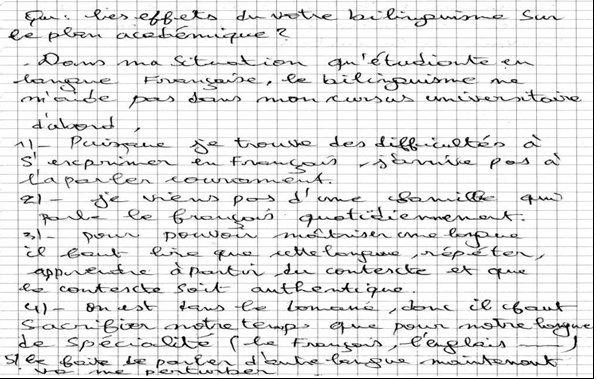 Qu: Les effets du votre bilinguisme sur
le plan académique ?
- Dans ma situation qu'étudiante en
langue Française, le bilinguisme ne
m'aide pas dans mon cursus universitaire
d'abord,
1)- Puisque je trouve des difficultés à
s'exprimer en Français, j'arrive pas à
la parler couramment.
2)- je viens pas d'une famille qui
parle le français quotidiennement.
3)- pour pouvoir maîtriser une langue
il faut lire que cette langue, répéter,
apprendre à partir du contexte et que
le contexte soit authentique.
4)- on est dans le , donc il faut
sacrifier notre temps que pour notre langue
de spécialité (le Français, l'anglais ----)
5) le faite de parler d'autre langue maintenant
va me perturber